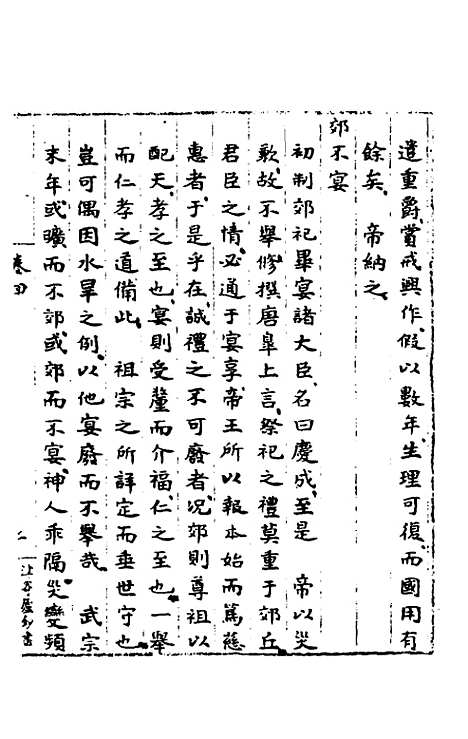 遣重爵賞戒興作假以數年生理可復而國用有
餘矣　帝納之
郊不宴
初制郊祀畢宴諸大臣名曰慶成至是　帝以災
歉故不舉修撰唐臯上言祭祀之禮莫重于郊丘
君臣之情必通于宴享帝王所以報本始而篤慈
惠者于是乎在誠禮之不可廢者況郊則尊祖以
配天孝之至也宴則受釐而介福仁之至也一舉
而仁孝之道備此　祖宗之所詳定而垂世守也
豈可偶因水旱之例以他宴廢而不舉哉　武宗
末年或曠而不郊或郊而不宴神人乖隔災變頻
卷四